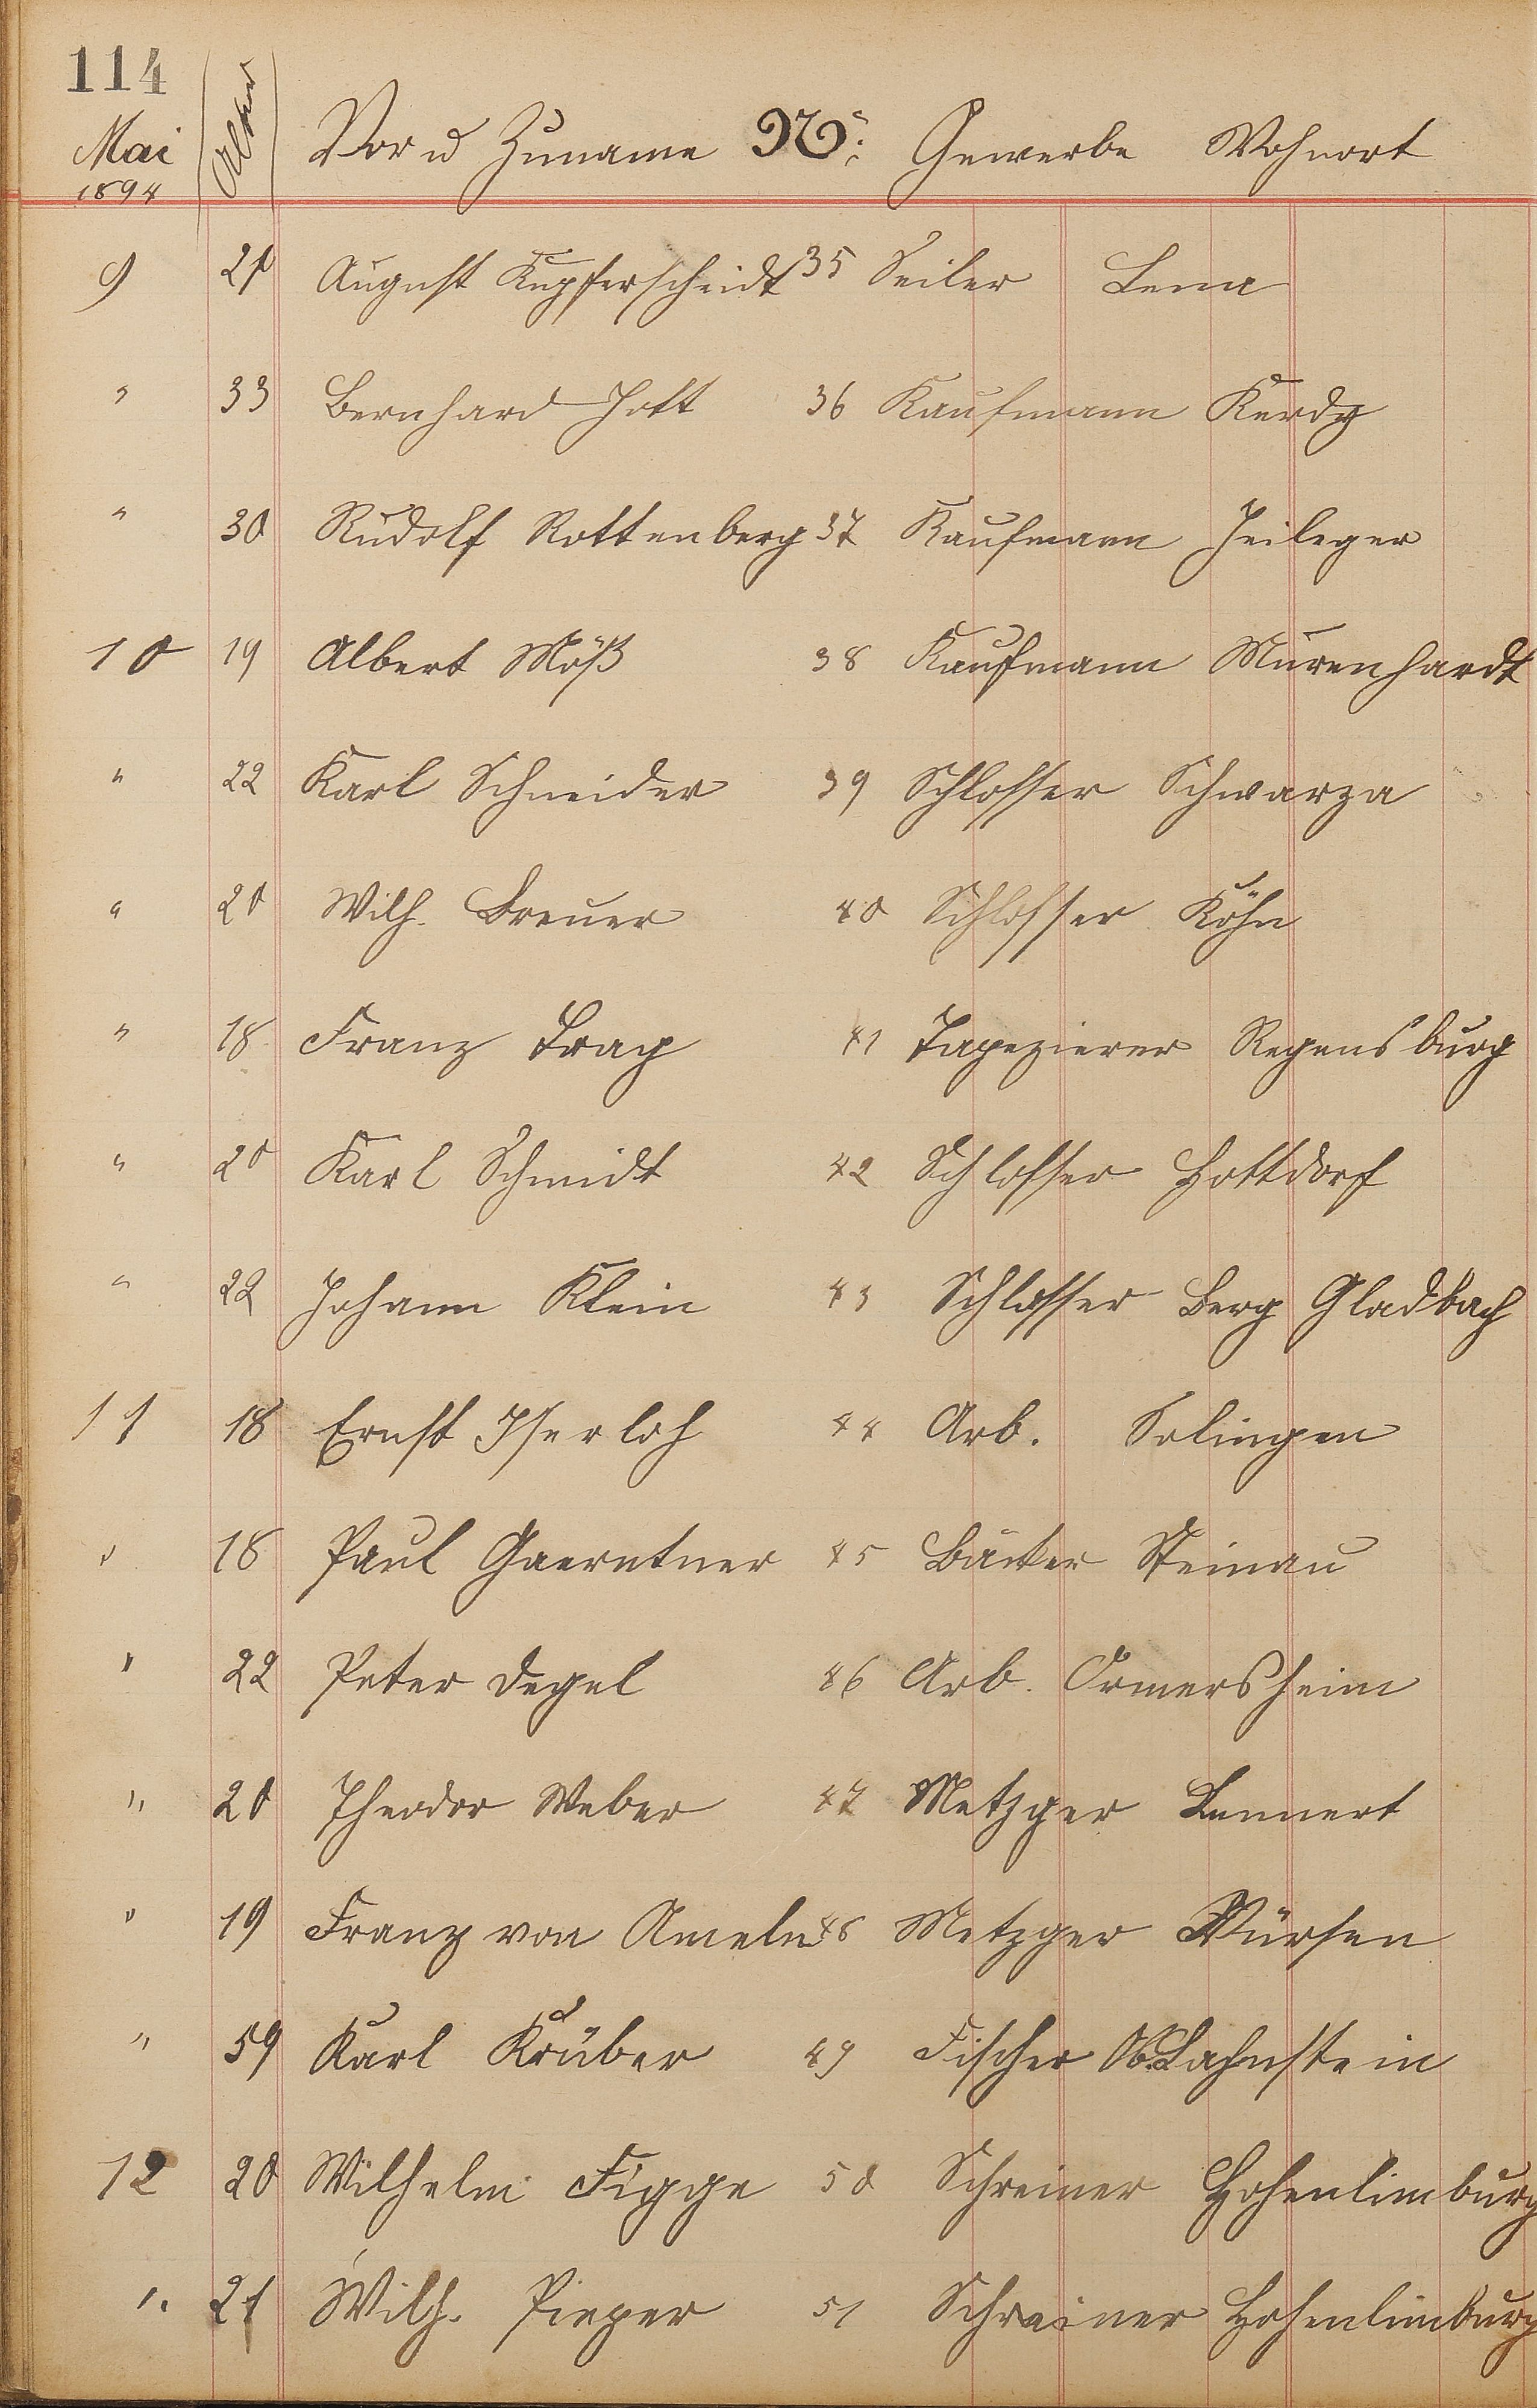 114
Mai Alter Vor u Zuname No: Gewerbe Wohnort
1894
9 21 August Kupferscheidt 35 Seiler Lena
" 33 Bernhard Jott 36 Kaufmann
" 30 Rudolf Rottenberg 37 Kaufmann
10 19 Albert Möß 38 Kaufmann Murenhardt
" 22 Karl Schneider 39 Schlosser Schwarza
" 20 Wilh. Breuer 40 Schlosser Köhn
" 18 Franz Trag 41 Tapezierer Regensburg
" 20 Karl Schmidt 42 Schlosser Hottdorf
" 22 Johann Klein 43 Schlosser Berg Gladbach
11 18 Ernst Iserloh 44 Arb. Solingen
" 18 Paul Gaerntner 45 Bäcker Steinau
" 22 Peter Degel 46 Arb. Ormersheim
" 20 Theodor Weber 47 Metzger Lennert
" 19 Franz von Ameln 48 Metzger Würsen
" 59 Karl Krüber 49 Fischer Ob.Lahnstein
12 20 Wilhelm Figge 50 Schreiner Hohenlimburg
" 21 Wilh. Pieper 51 Schreiner Hohenlimburg